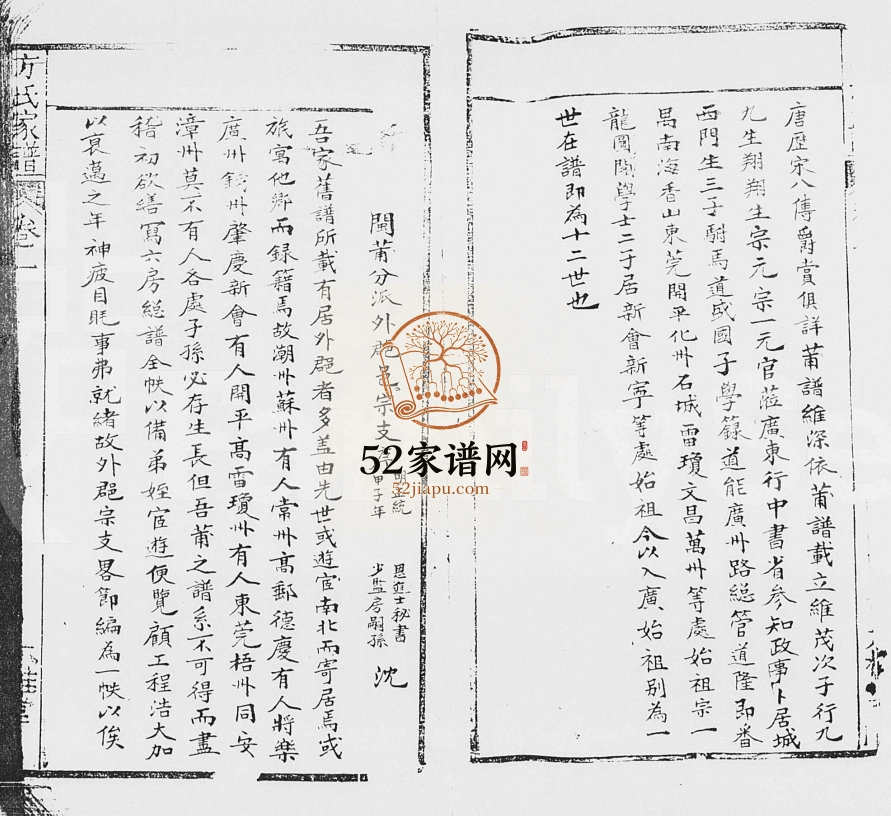 唐歷宋八傳爵賞俱詳莆譜維深依莆譜載立維茂次子行九
九生翔翔生宗元宗一元官蒞廣東行中書省參知政事卜居城
西門生三子駙馬道盛國子學籙道能廣州路總管道隆即番
禺南海香山東莞開平化州石城雷瓊文昌萬州等處始祖宗一
龍圖閣學士二子居新會新寧等處始祖今以入廣始祖別為一
世在譜即為十二世也
閩莆分派外郡邑宗支
明正統
甲子年
恩進士秘書
少監房嗣孫
沈
吾家舊譜所載有居外郡者多盖由先世或遊宦南北而寄居焉或
旅寓他鄉而録籍焉故潮州蘇州有人常州高郵德慶有人將樂
廣州錢州肇慶新會有人開平高雷瓊州有人東莞梧州同安
漳州莫不有人各處子孫必存生長但吾莆之譜系不可得而盡
稽初欲繕寫六房總譜全帙以備弟姪宦遊便覽顧工程浩大加
以衰邁之年神疲目眊事弗就緒故外郡宗支畧節編為一帙以俟
方氏家譜
卷一
52家谱网
52jiapu.com